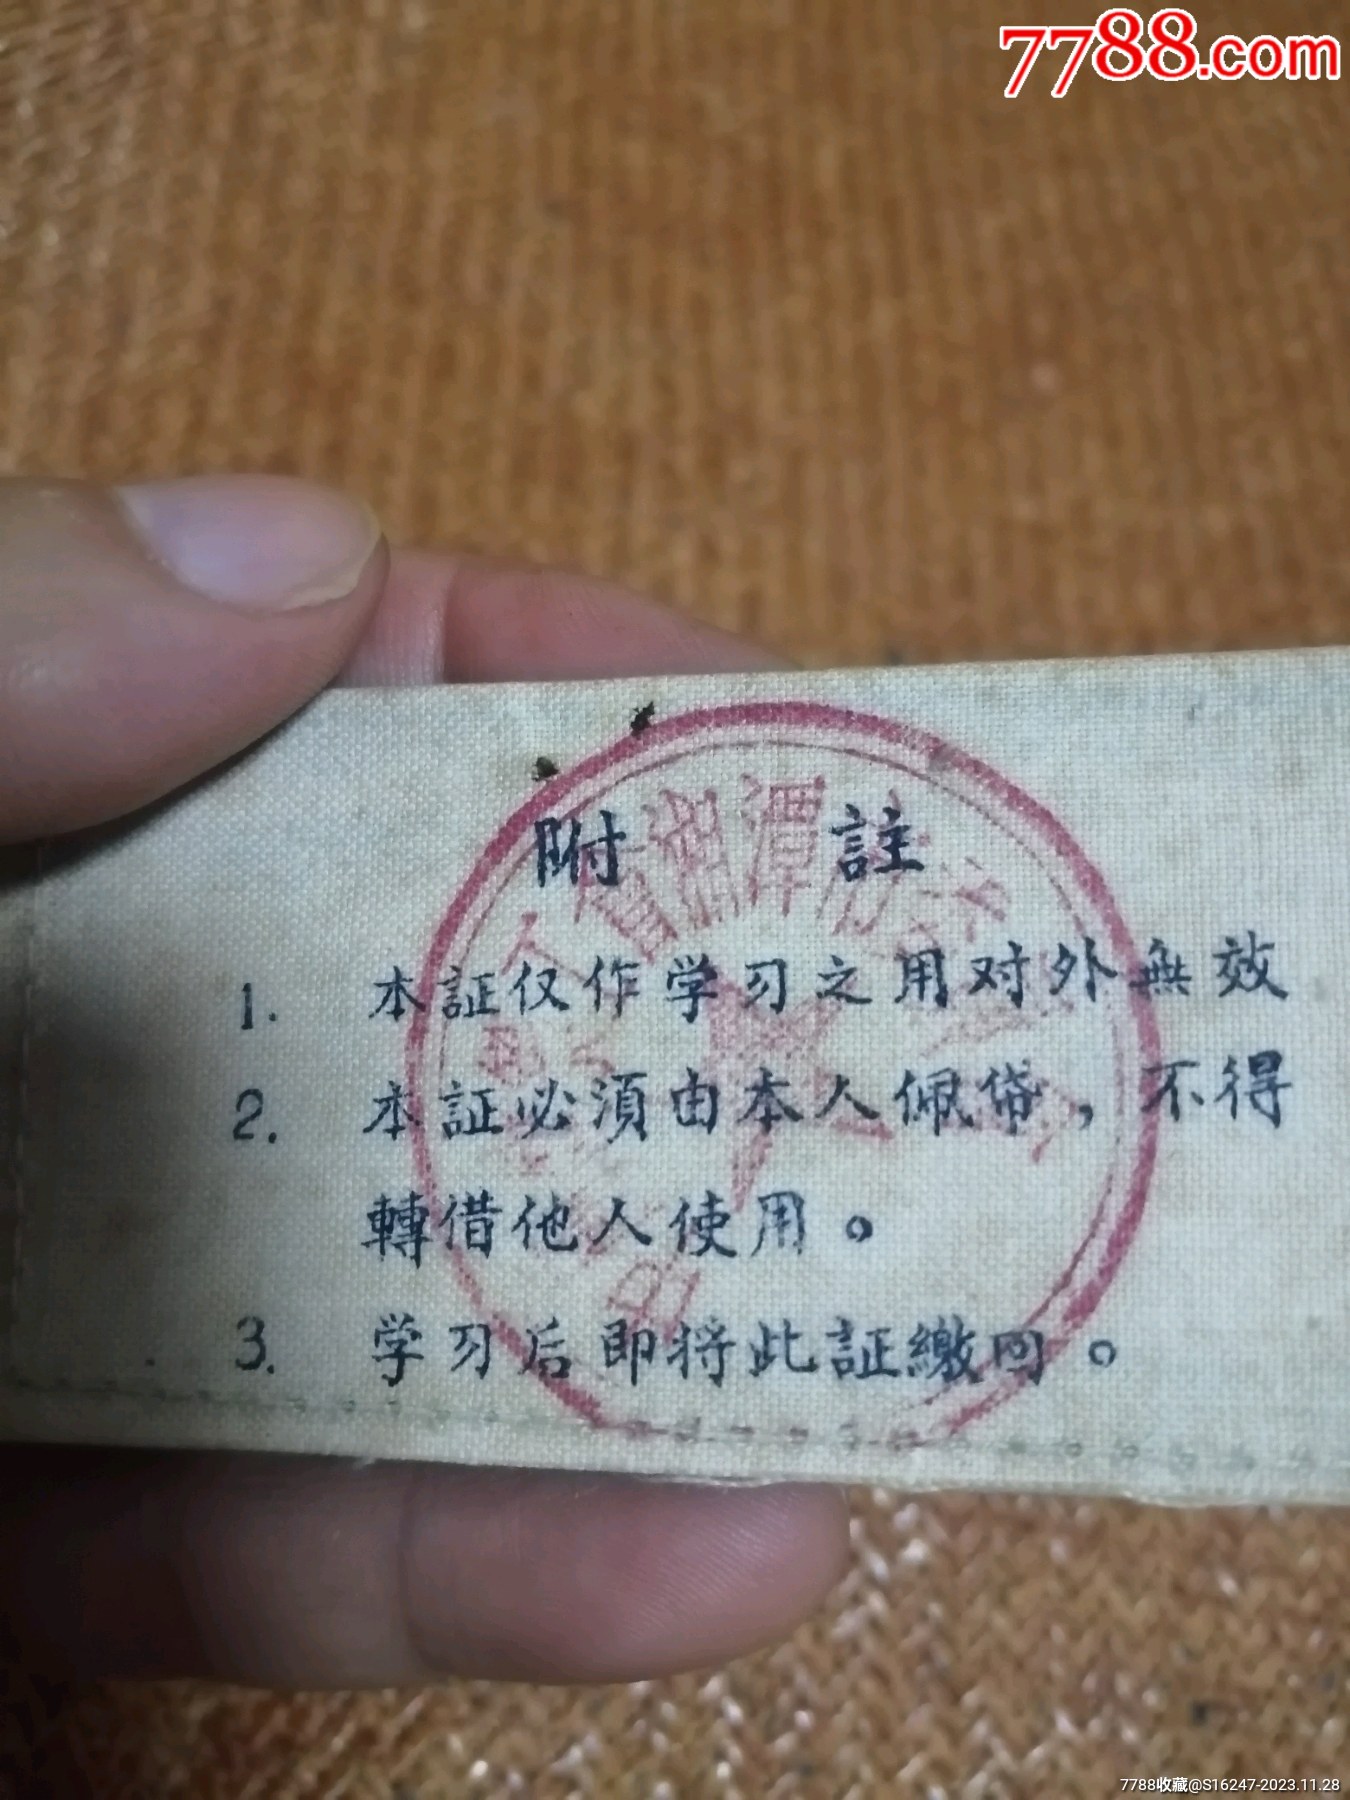 7788.com
附 註
1. 本証仅作学习之用对外無效
2. 本証必須由本人佩帶，不得
轉借他人使用。
3. 学习后即将此証繳回。
工會湘潭
7788收藏@S16247-2023.11.28